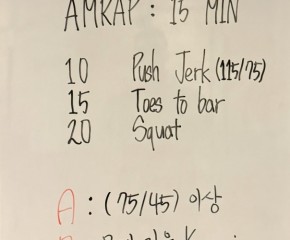 AMRAP : 15 MIN
10 Push Jerk (115/75)
15 Toes to bar
20 Squat
A : (75/45) 이상